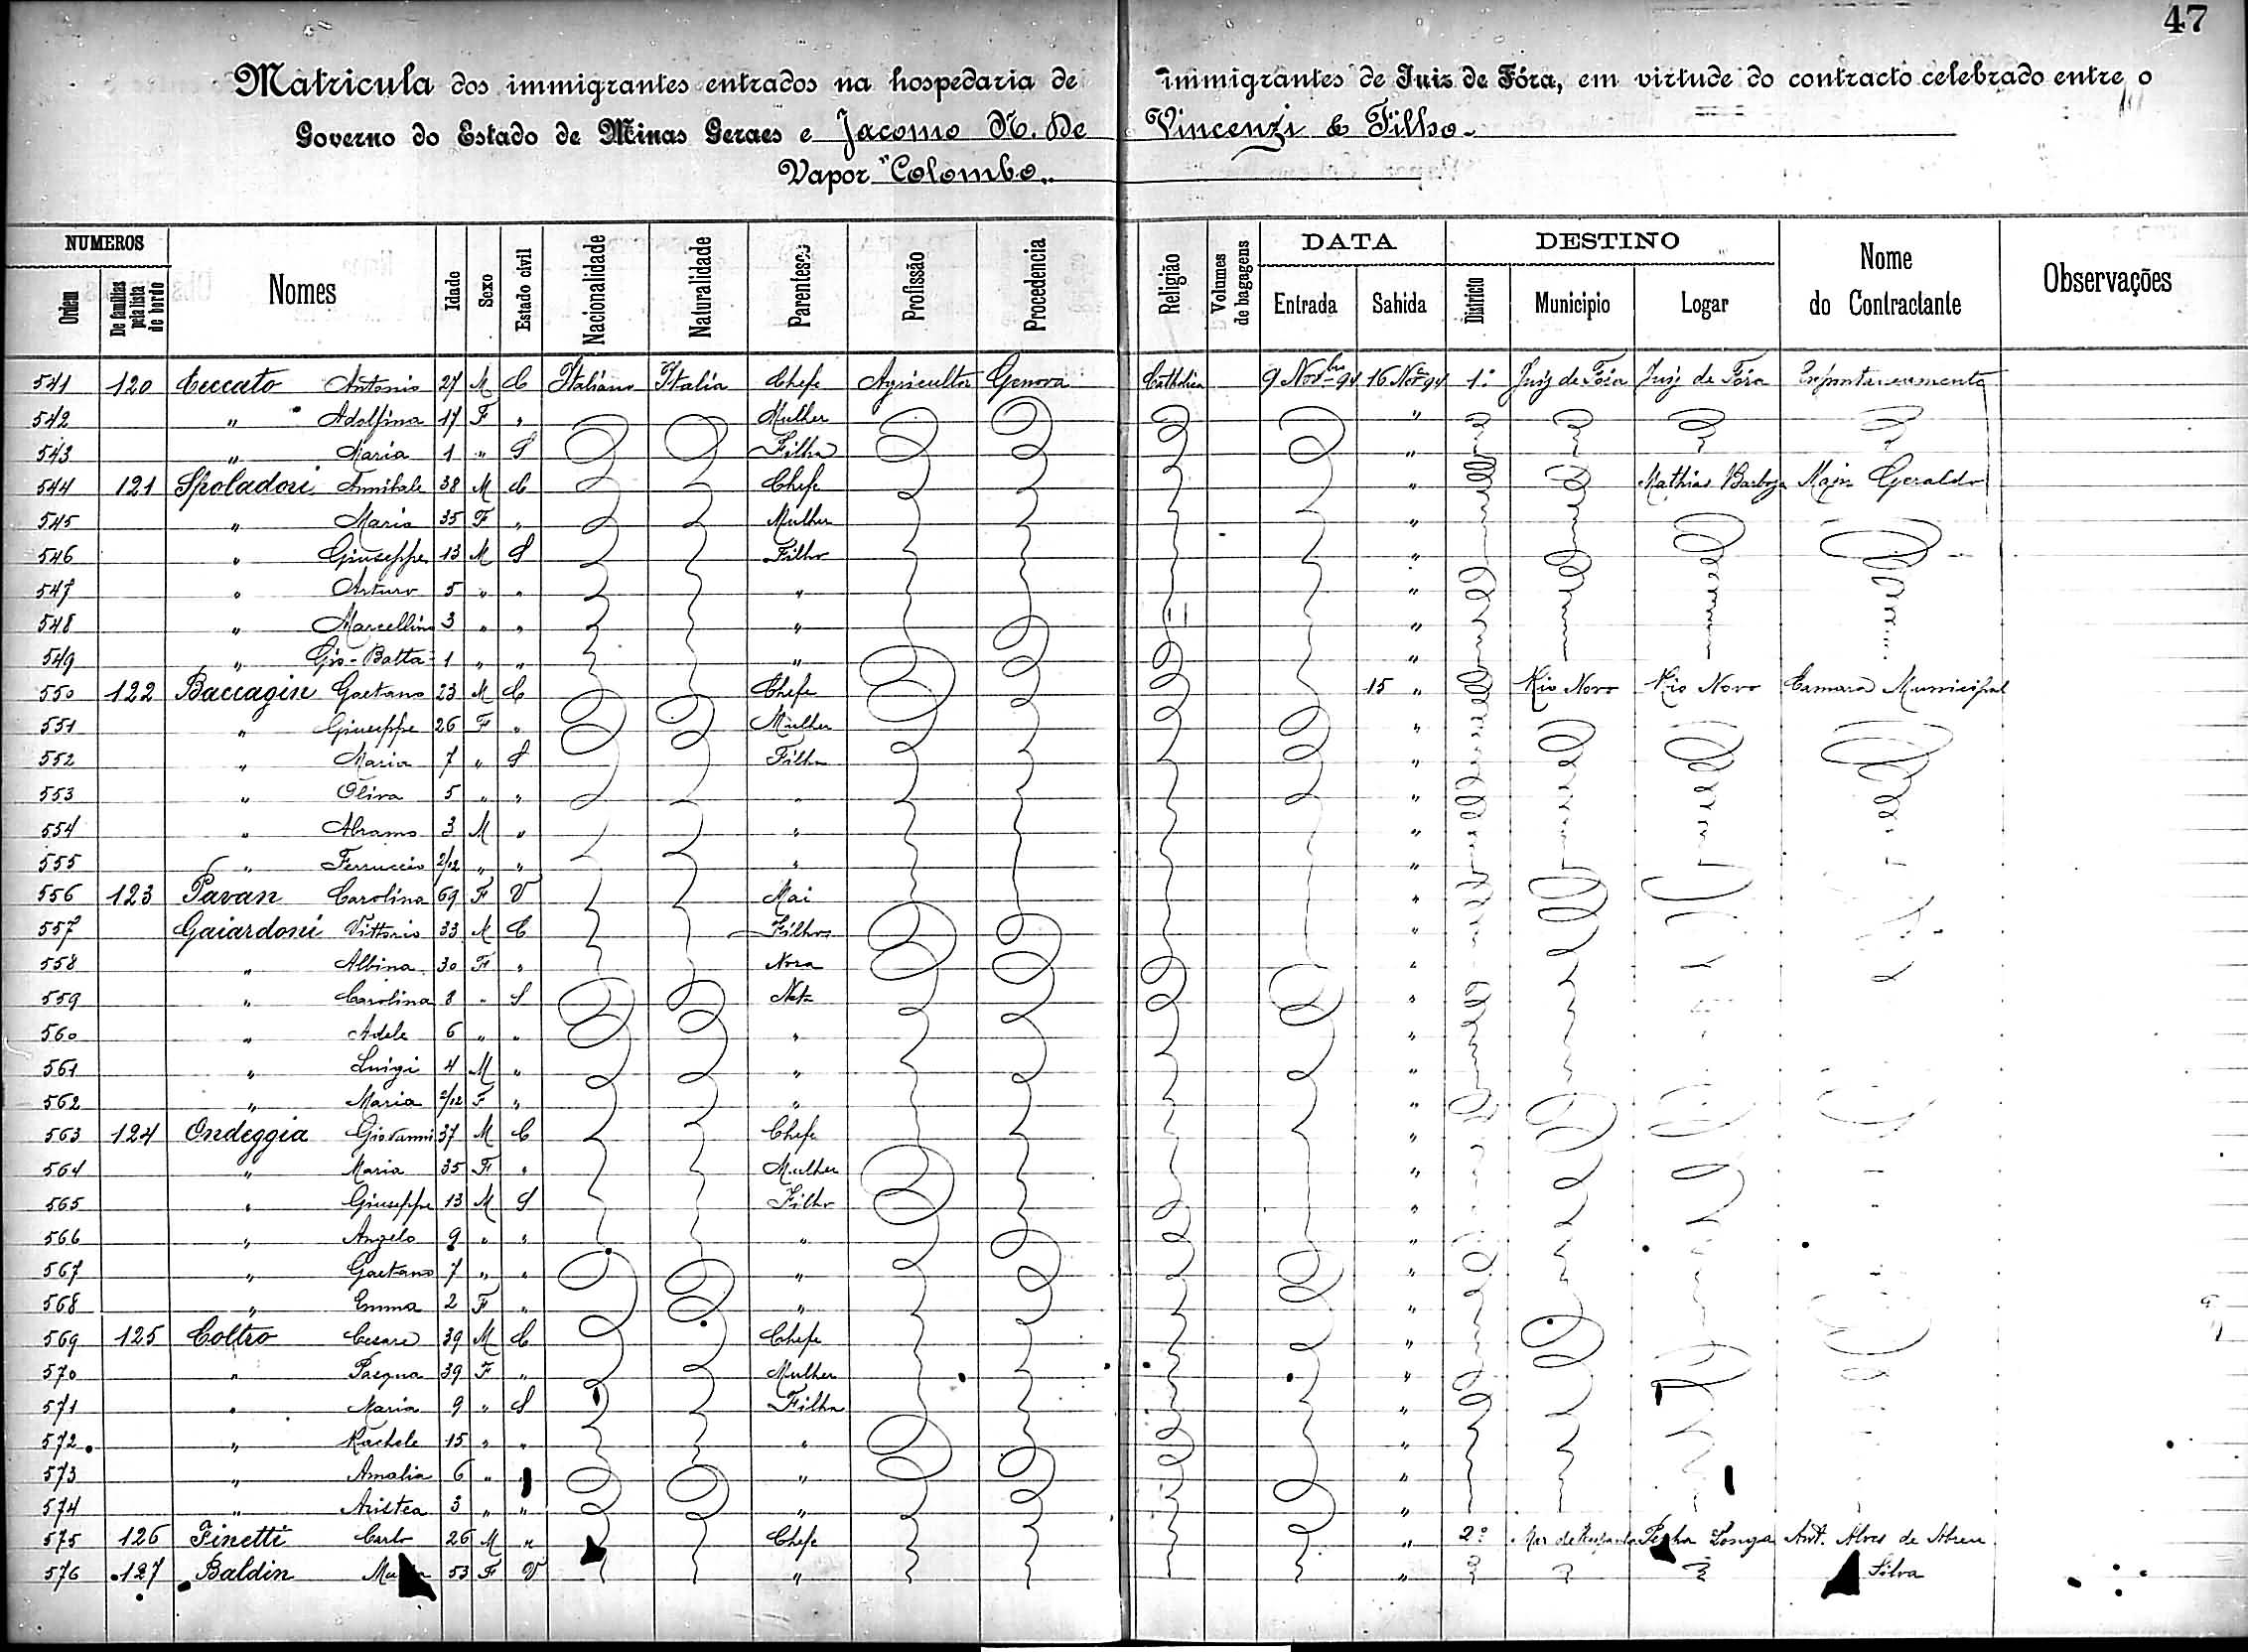 47
Matricula dos immigrantes entrados na hospedaria de immigrantes de Juiz de Fóra, em virtude do contracto celebrado entre o
Governo do Estado de Minas Geraes e Jacomo N. De Vincenzi & Filho.
Vapor "Colombo"
NUMEROS DATA DESTINO
Ordem De familias pela lista de bordo Nomes Idade Sexo Estado civil Nacionalidade Naturalidade Parentesco Profissão Procedencia Religião Volumes de bagagens Entrada Sahida Districto Municipio Logar Nome do Contractante Observações
541 120 Ceccato Antonio 27 M C Italiano Italia Chefe Agricultor Genova Catholica 9 Nov-bro 94 16 Nov 94 1º Juiz de Fóra Juiz de Fóra Espontaneamente
542 " Adolfina 17 F " Mulher "
543 " Maria 1 " S Filha "
544 121 Spoladori Annibale 38 M C Chefe " Mathias Barboza Major Geraldo
545 " Maria 35 F " Mulher "
546 " Giuseppe 13 M S Filho "
547 " Arturo 5 " " " "
548 " Marcellino 3 " " " "
549 " Gio-Batta 1 " " " "
550 122 Baccagin Gaetano 23 M C Chefe 15 " Rio Novo Rio Novo Camara Municipal
551 " Giuseppe 26 F " Mulher "
552 " Maria 7 " S Filha "
553 " Oliva 5 " " " "
554 " Abramo 3 M " " "
555 " Ferruccio 2/12 " " " "
556 123 Pavan Carolina 69 F V Mai "
557 Gaiardoni Vittorio 33 M C Filho "
558 " Albina 30 F " Nora "
559 " Carolina 8 " S Neta "
560 " Adele 6 " " " "
561 " Luigi 4 M " " "
562 " Maria 2/12 F " " "
563 124 Ondeggia Giovanni 37 M C Chefe "
564 " Maria 35 F " Mulher "
565 " Giuseppe 13 M S Filho "
566 " Angelo 9 " " " "
567 " Gaetano 7 " " " "
568 " Emma 2 F " " "
569 125 Coltro Cesare 39 M C Chefe "
570 " Pasqua 39 F " Mulher "
571 " Maria 9 " S Filha "
572 " Rachele 15 " " " "
573 " Amalia 6 " " " "
574 " Aristea 3 " " " "
575 126 Finetti Carlo 26 M " Chefe " 2º Mar de Hespanha Penha Longa Ant. Alves de Abreu
576 127 Baldin 53 F V " " Silva